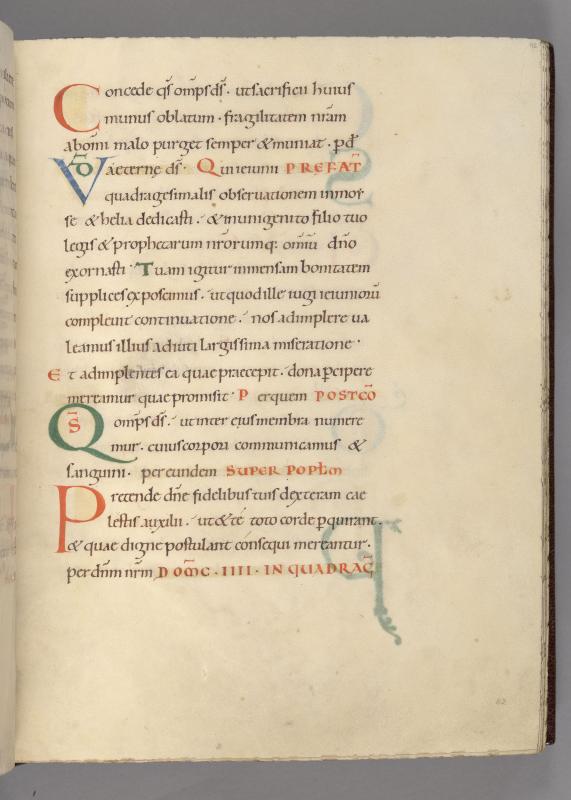 Concede qs omps ds · ut sacrificii huius
munus oblatum · fragilitatem nram
ab omi malo purget semper & muniat · p d
VD aeterne ds · Qui ieiunii PREFAT
quadragesimalis observationem in moy
se & helia dedicasti · & in unigenito filio tuo
legis & prophetarum nrorumq: omiu dno
exornasti · Tuam igitur inmensam bonitatem
supplices exposcimus · ut quod ille iugi ieiunioru
complevit continuatione · nos adimplere va
leamus illius adiuti largissima miseratione ·
Et adimplentes ea quae praecepit · dona pcipere
mereamur quae promisit · P er quem POSTCO
Qs omps ds · ut inter eius membra numere
mur · cuius corpori communicamus &
sanguini · per eundem SUPER POPLM
Pretende dne fidelibus tuis dexteram cae
lestis auxilii · ut & te toto corde pquirant ·
& quae digne postulant consequi mereantur ·
per dnm nrm DOMC · IIII · IN QUADRAG
62